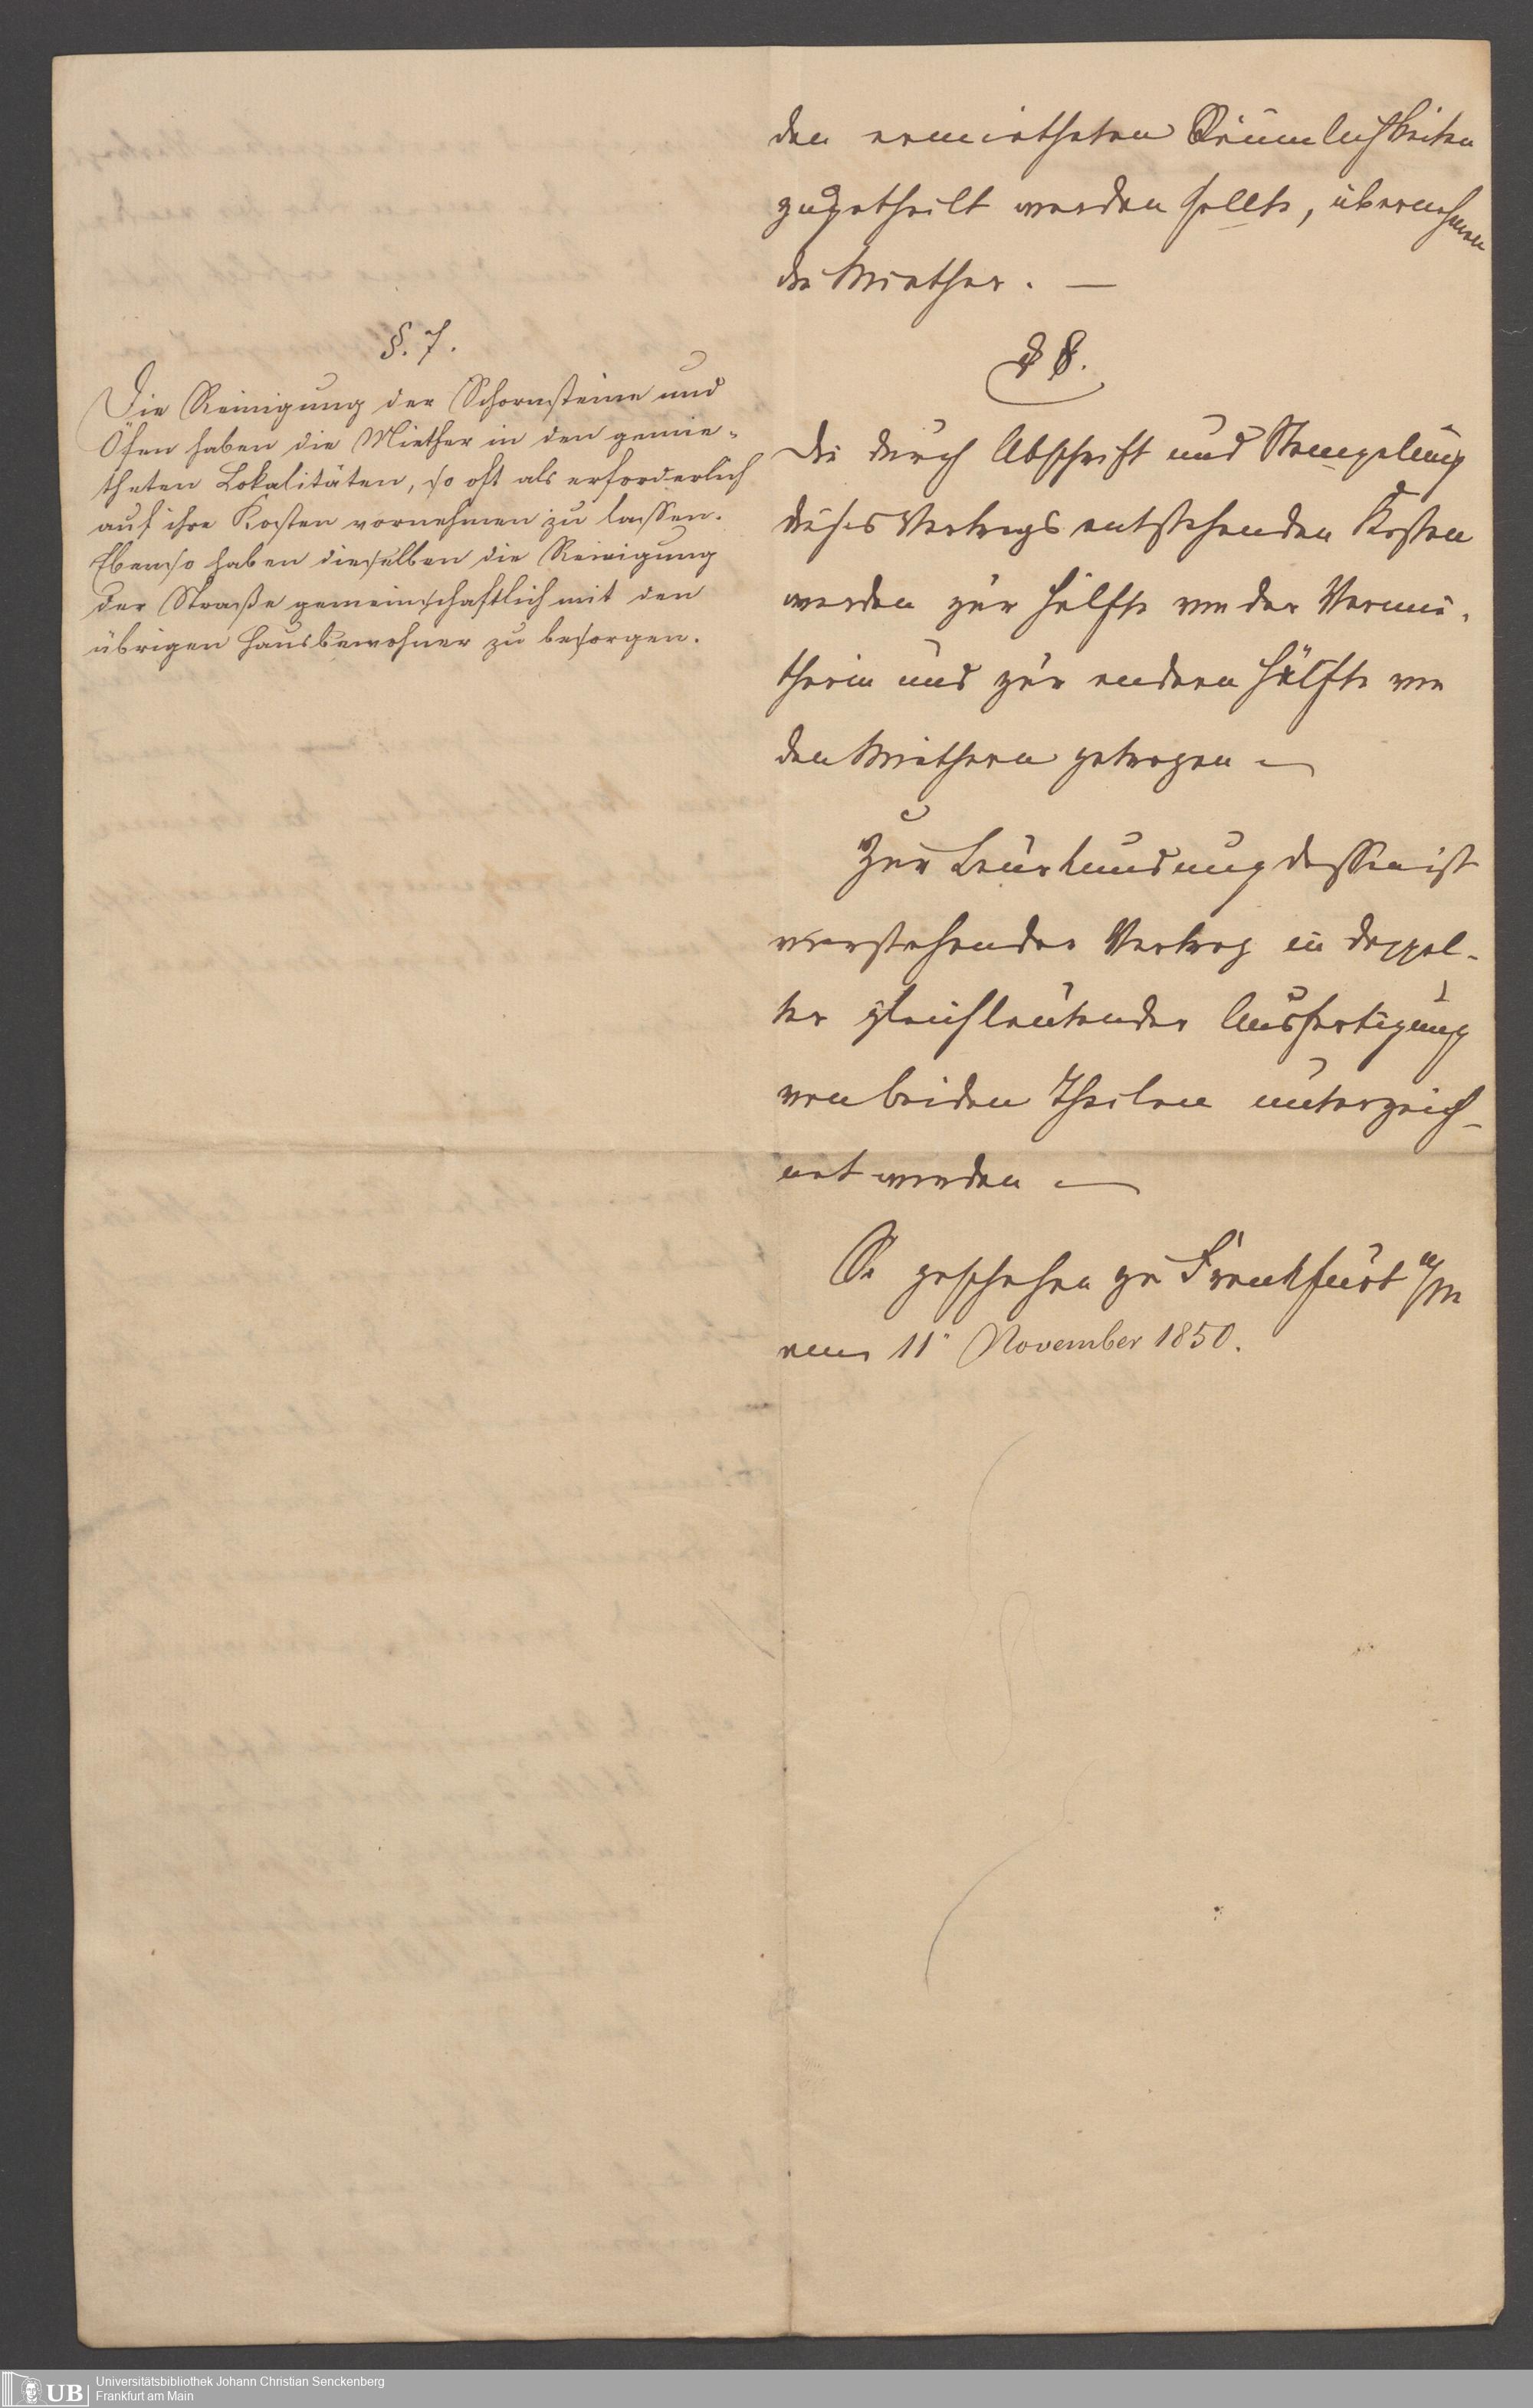 den ermietheten Räumlichkeiten
zugetheilt werden sollte, übernehmen
die Miether. —
§. 7.
Die Reinigung der Schornsteine und
Öfen haben die Miether in den gemie-
theten Lokalitäten, so oft als erforderlich
auf ihre Kosten vornehmen zu lassen.
Ebenso haben dieselben die Reinigung
der Straße gemeinschaftlich mit den
übrigen Hausbewohner zu besorgen.
§ 8.
Die durch Abschrift und Stempelung
dieses Vertrags entstehenden Kosten
werden zur Hälfte von der Vermie-
therin und zur andern Hälfte von
den Miethern getragen —
Zur Beurkundung dessen ist
vorstehender Vertrag in doppel-
ter gleichlautender Ausfertigung
von beiden Theilen unterzeich-
net worden —
So geschehen zu Frankfurt a/M
am 11 November 1850.
UB
Universitätsbibliothek Johann Christian Senckenberg
Frankfurt am Main